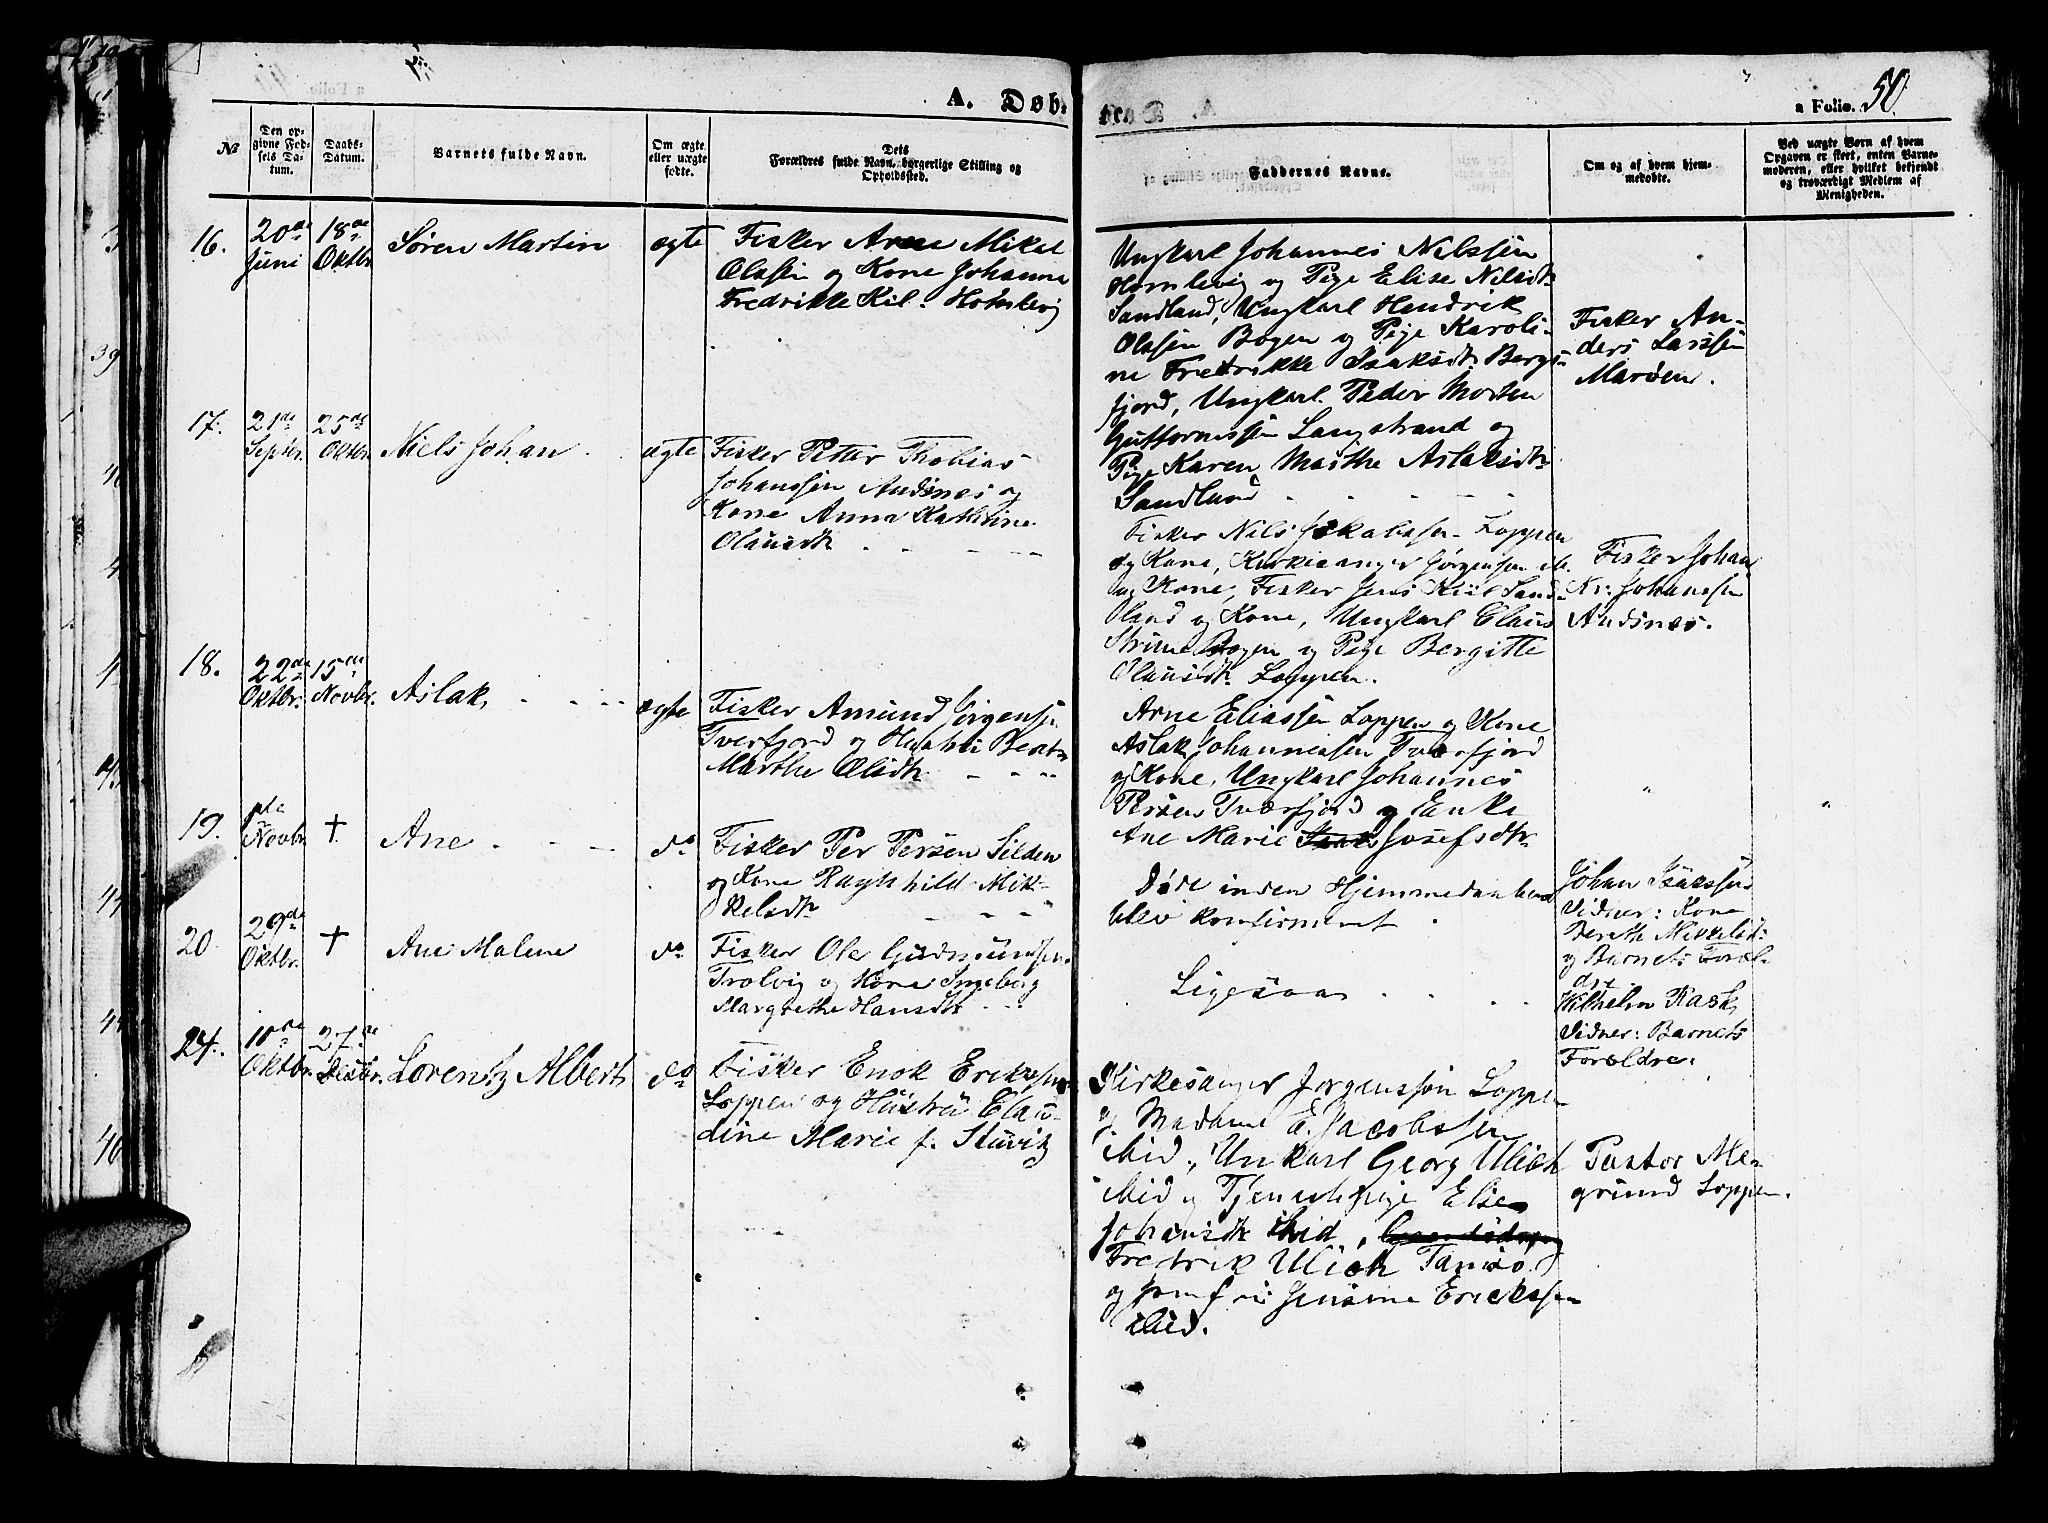 A. Døb.
a Folio. 50.
No
Den opgivne Fødsels Datum.
Daabs-Datum.
Barnets fulde Navn.
Om ægte eller uægte fødte.
Dets Forældres fulde Navn, borgerlige Stilling og Opholdssted.
Faddernes Navne.
Om og af hvem hjemmedøbte.
Ved uægte Børn af hvem Opgaven er skeet, enten Barnemoderen, eller hvilket bekjendt og troværdigt Medlem af Menigheden.
16.
20de
Juni
18de
Oktbr
Søren Martin
ægte
Fisker Arne Mikal
Olasen og Kone Johanna
Fredrikke Kil. Homlevig
Ungkarl Johannes Nilssen
Homlevig og Pige Elise Nilsdtr
Sandland, Ungkarl Hendrik
Olasen Bogen og Pige Karoli-
ne Fredrikke Isaksdtr Bergs-
fjord, Ungkarl Peder Morten
Guttormssen Langstrand og
Pige Karen Marthe Aslaksdtr
Sandland
Fisker An-
ders Larssen
Marøen.
17.
21de
Septbr.
25de
Oktbr.
Niels Johan
ægte
Fisker Petter Thobias
Johanssen Andsnes og
Kone Anna Kathrine
Olausdtr
Fisker Nils Jakobsen Loppen
og Kone, Kirkesanger Jørgensen ib.
og Kone, Fisker Jens Kiil Sand-
land og Kone, Ungkarl Claus
Bogen og Pige Bergitte
Olausdtr Loppen.
Fisker Johan
Kr. Johanssen
Andsnes.
18.
22de
Oktbr.
15de
Novbr.
Aslak
ægte
Fisker Amund Jørgensen
Tverfjord og Hustru Berit
Marthe Olsdtr
Arne Eliassen Loppen og Kone
Aslak Johannessen Tværfjord
og Kone, Ungkarl Johannes
Persen Tværfjord og Enke
Ane Marie Josefsdtr
19.
1ste
Novbr.
†
Ane
do
Fisker Per Persen Silden
og Kone Raghhild Mik-
kelsdtr
Døde inden Hjemmedaaben
blev konfirmeret
Johan Isakssen
Vidner: Kone
Bereth Mikkelsdtr
og Barnets Foræl-
dre
20
29de
Oktbr.
†
Ane Malene
do
Fisker Ole Gudmundsen
Trolvig og Kone Ingeborg
Margrethe Hansdtr
Ligesaa
Wilhelm Rask
Vidner: Barnets
Forældre.
21.
10de
Oktbr.
27de
Decbr.
Lorentz Albert
do
Fisker Enok Erikssen
Loppen og Hustru Clau-
dine Marie f. Stuvitz
Kirkesanger Jørgenssen Loppen
og Madame E. Jacobssen
ibid., Unkarl Georg Ulich
ibid og Tjenestepige Elise
Johansdtr ibid,
Fredrik Ulich Tamsø
og Jomfru Jensine Erickssen
ibid.
Pastor Me-
grund Loppen.